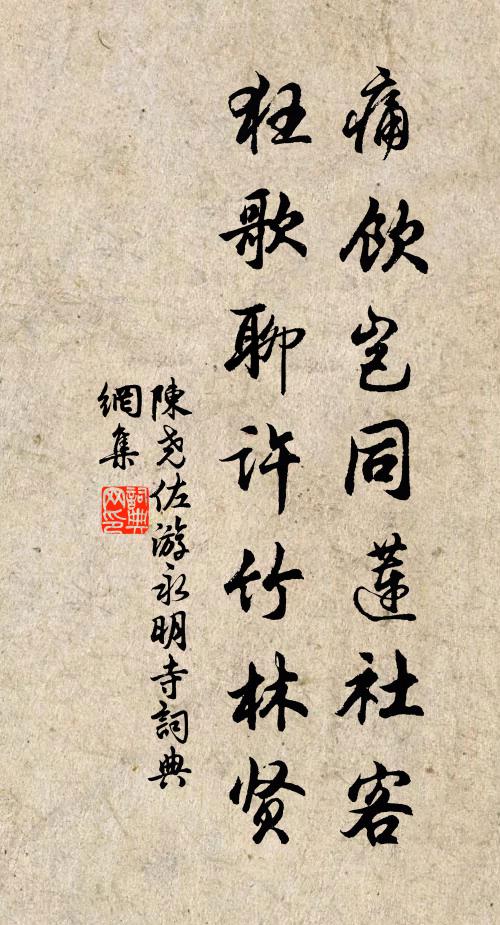 痛飲豈同蓮社客
狂歌聊许竹林贤
陳尧佐游永明寺詞典
網集
詞典网印